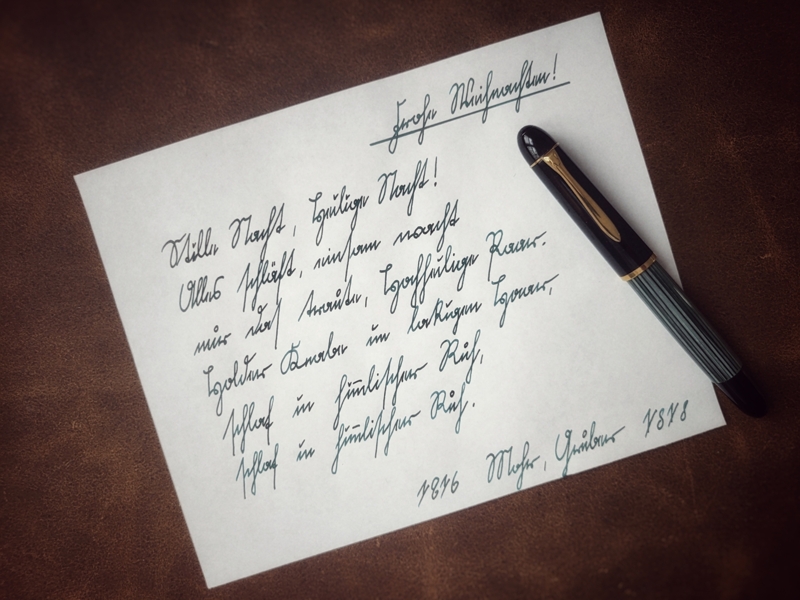 Frohe Weihnachten!
Stille Nacht, heilige Nacht!
Alles schläft, einsam wacht
nur das traute, hochheilige Paar.
Holder Knabe im lockigen Haar,
schlaf in him̅lischer Ruh,
schlaf in him̅lischer Ruh.
1816 Mohr, Gruber 1818